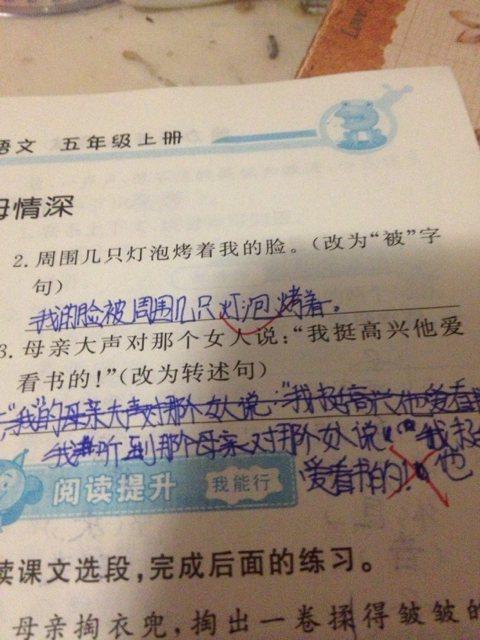 语文 五年级上册
母情深
2.周围几只灯泡烤着我的脸。(改为“被”字
句)
我的脸被周围几只灯泡烤着。
3.母亲大声对那个女人说:“我挺高兴他爱
看书的!”(改为转述句)
“我”的母亲大声对那个女人说:“我挺高兴他爱看
我听到那个母亲对那个女人说
爱看书的! 他
阅读提升 我能行
读课文选段,完成后面的练习。
母亲掏衣兜,掏出一卷揉得皱皱的